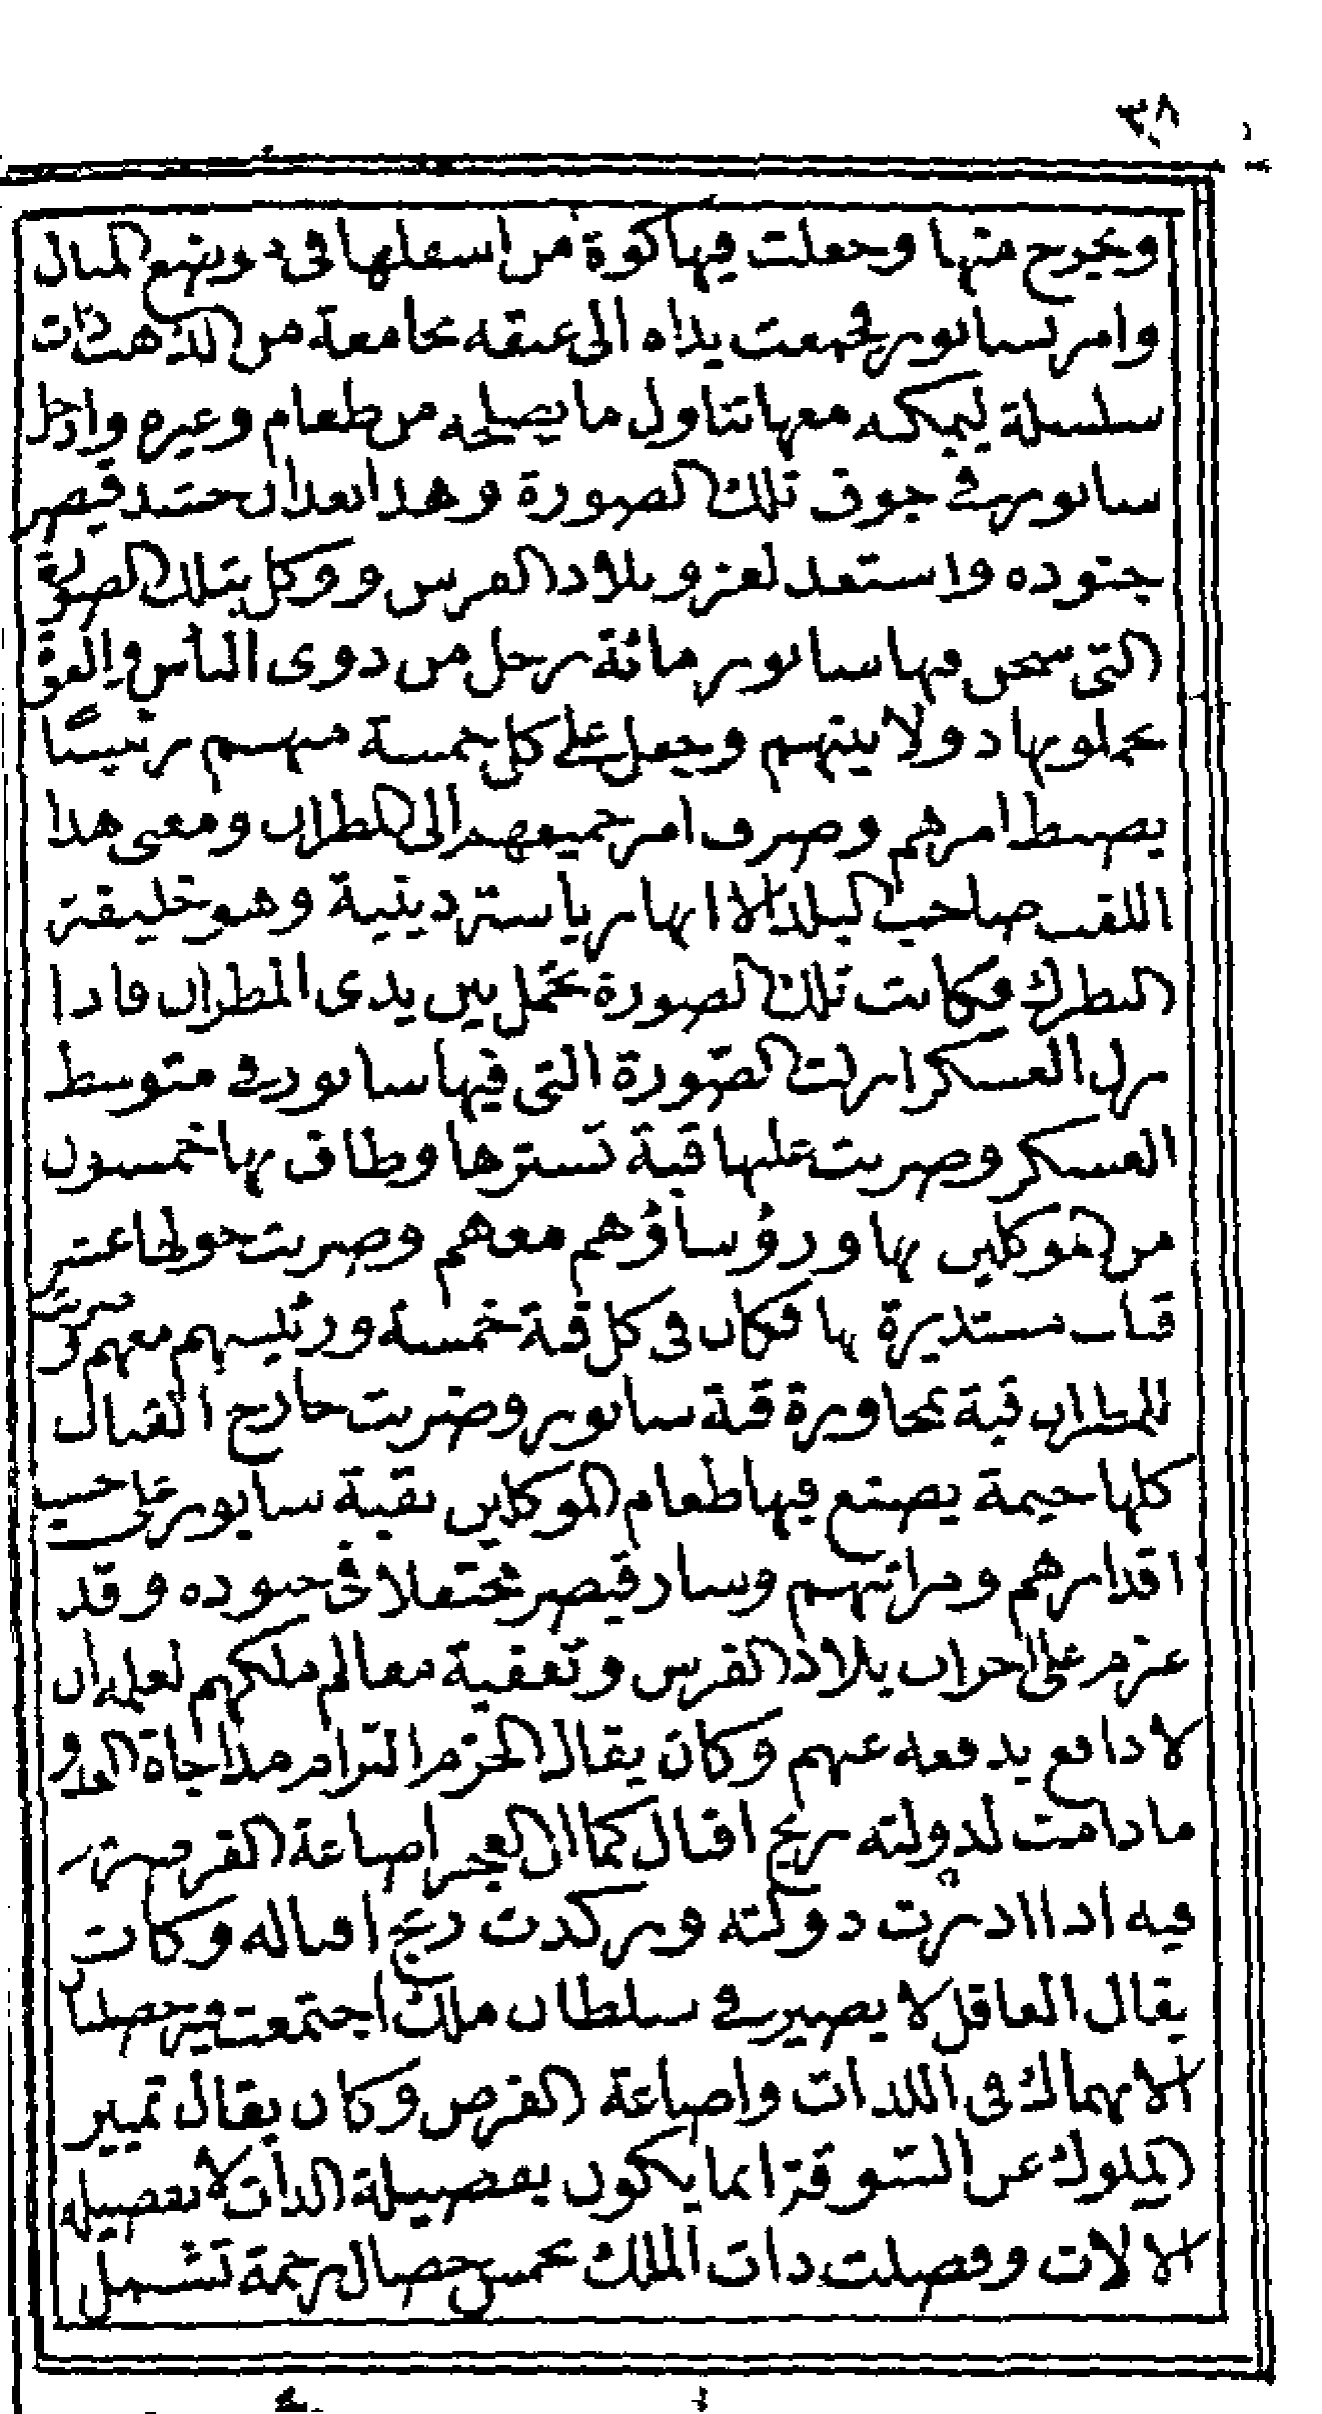 ٣٨
ويخرج منها وجعلت فيها كوة من اسفلها فى دورنهع لمبال
وامر بسابور فجمعت يداه الى عنقه بجامعة من الذهب ذات
سلسلة ليمكنه معها تناول ما يصلحه من طعام وغيره وادخل
سابور فى جوف تلك الصورة وهذا بعد ان حشد قيصر
جنوده واستعد لغزو بلاد الفرس ووكل بتلك الصورة
التى سجن فيها سابور مائة رجل من ذوى الباس والقوة
يحملونها دولا بينهم وجعل على كل خمسة منهم رئيسا
يضبط امرهم وصرف امر جميعهم الى المطران ومعنى هذا
اللقب صاحب البلد الا انها رياسة دينية وهو خليفة
البطرك فكانت تلك الصورة تحمل بين يدى المطران فاذا
نزل العسكر انزلت الصورة التى فيها سابور فى متوسط
العسكر وضربت عليها قبة تسترها وطاف بها خمسون
من الموكلين بها ورؤساؤهم معهم وضربت حولها عشر
قباب مستديرة بها فكان فى كل قبة خمسة ورئيسهم معهم وضربت
للمطران قبة بمجاورة قبة سابور وضربت خارج القباب
كلها خيمة يصنع فيها طعام الموكلين بقبة سابور على حسب
اقدارهم ومراتبهم وسار قيصر محتفلا فى جنوده وقد
عزم على اخراب بلاد الفرس وتعفية معالم ملكهم لعلمه ان
لا دافع يدفعه عنهم وكان يقال الحزم التزام مداجاة العدو
ما دامت لدولته ريح اقبال كما ان العجز اضاعة الفرصة
فيه اذا ادبرت دولته وركدت ريح اقباله وكان
يقال العاقل لا يصير فى سلطان ملك اجتمعت فيه خصلتان
الانهماك فى اللذات واضاعة الفرص وكان يقال تمييز
الملوك عن السوقة انما يكون بفضيلة الذات لا بفضيلة
الالات وفضلت ذات الملك بخمس خصال رحمة تشمل